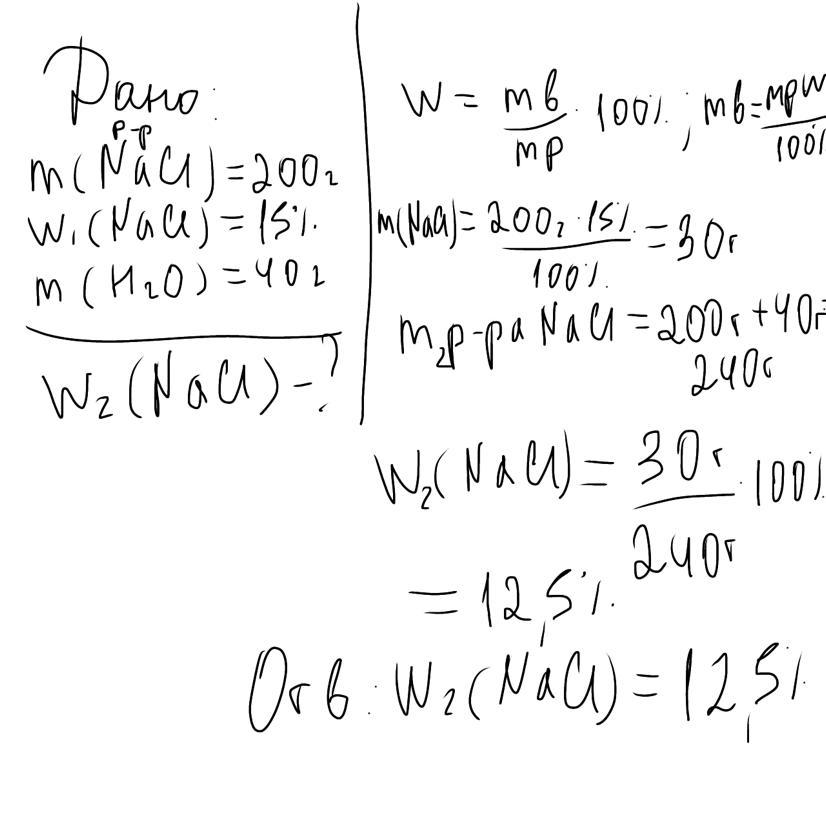 Дано:
р-р
m(NaCl)=200г
w₁(NaCl)=15%
m(H₂O)=40г
w₂(NaCl)-?
w = mв/mр · 100% ; mв=mрw/100%
m(NaCl)= 200г · 15%/100% =30г
m₂р-ра NaCl =200г+40г=
240г
w₂(NaCl)= 30г/240г · 100%
=12,5%
Отв: w₂(NaCl)=12,5%